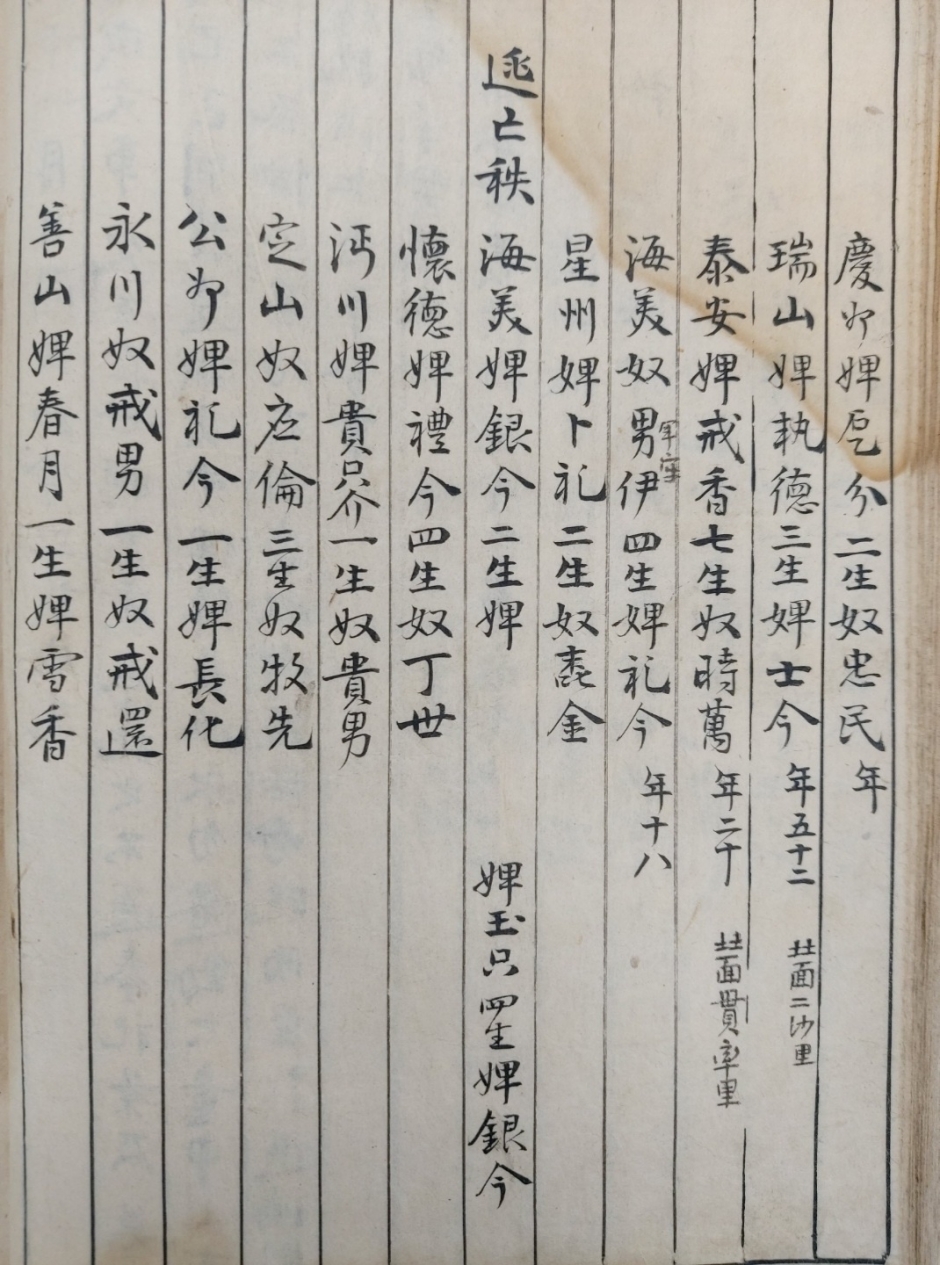 慶州婢乭分二生奴忠民 年
瑞山婢執德三生婢士今 年五十二 北面二沙里
泰安婢戒香七生奴時萬 年二十 北面貫率里
海美奴男伊四生婢礼今 年十八
星州婢卜礼二生奴金
逃亡秩 海美婢銀今二生婢 婢玉只四生婢銀今
懷德婢禮今四生奴丁世
沔川婢貴只介一生奴貴男
定山奴応倫三生奴牧先
公州婢礼今一生婢長化
永川奴戒男一生奴戒還
善山婢春月一生婢雪香